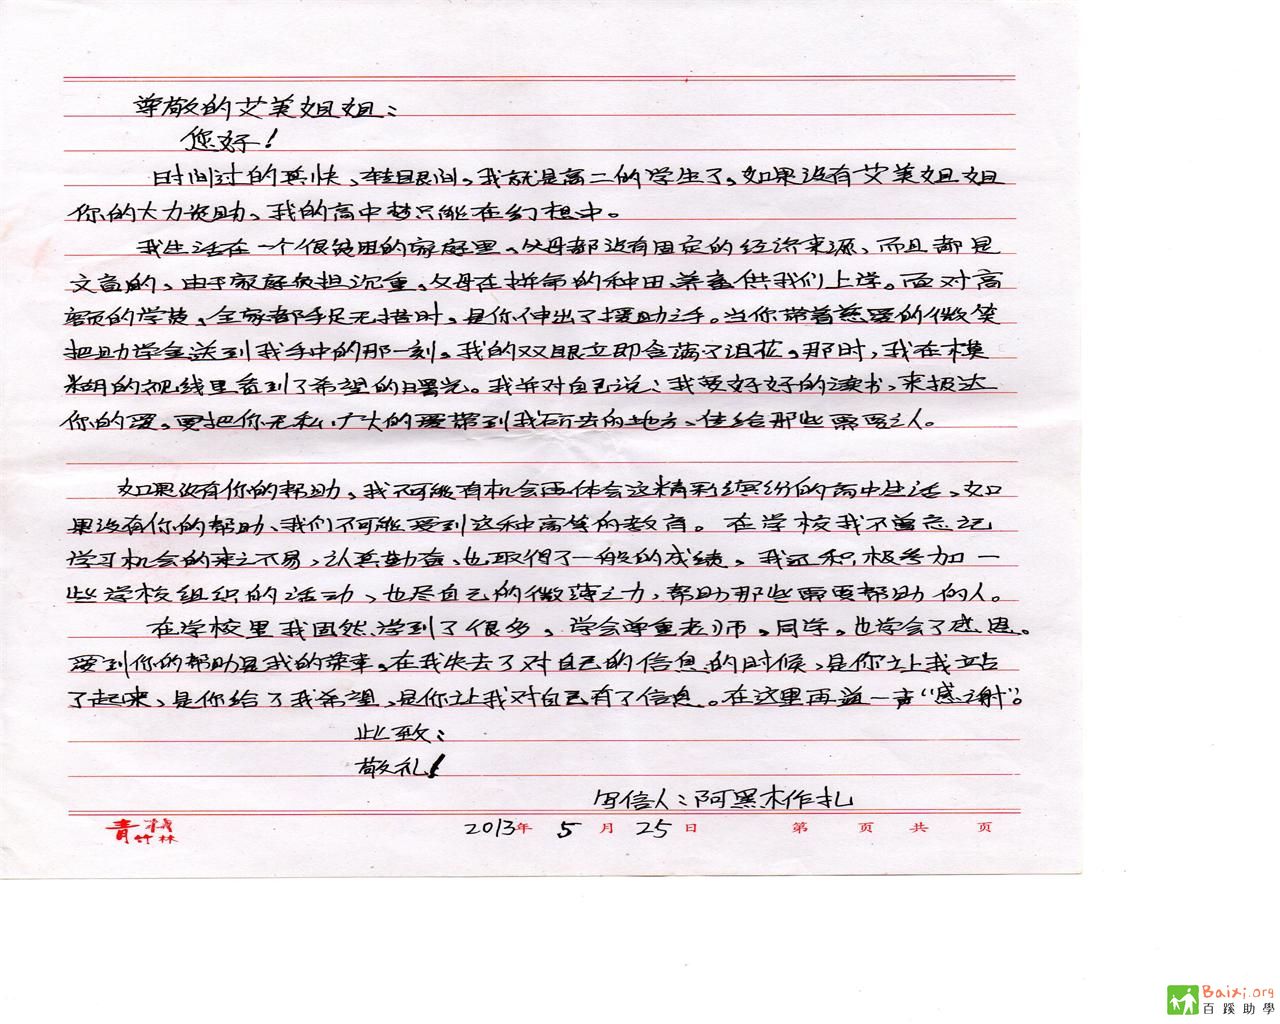 尊敬的艾美姐姐：
您好！
时间过的真快、转眼间，我就是高二的学生了。如果没有艾美姐姐
你的大力资助、我的高中梦只能在幻想中。
我生活在一个很贫困的家庭里、父母都没有固定的经济来源，而且都是
文盲的，由于家庭负担沉重，父母在拼命的种田养畜供我们上学。面对高
额的学费，全家都手足无措时，是你伸出了援助之手。当你带着慈爱的微笑
把助学金送到我手中的那一刻。我的双眼立即含满了泪花。那时，我在模
糊的视线里看到了希望的曙光。我并对自己说：我要好好的读书，来报达
你的爱，更把你无私广大的爱带到我所去的地方、传给那些需要之人。
如果没有你的帮助，我不可能有机会再体会这精彩缤纷的高中生活，如
果没有你的帮助、我们不可能受到这种高等的教育。在学校我不曾忘记
学习机会的来之不易，认真勤奋、也取得了一般的成绩。我还积极参加一
些学校组织的活动、也尽自己的微薄之力，帮助那些需要帮助的人。
在学校里我固然学到了很多，学会尊重老师。同学。也学会了感恩。
受到你的帮助是我的荣幸。在我失去了对自己的信息的时候，是你让我站
了起来，是你给了我希望，是你让我对自己有了信息。在这里再道一声“感谢”。
此致：
敬礼！
写信人：阿黑木作扎
青林 竹林 2013年 5月 25日 第 页 共 页
Baixi.org
百蹊助學